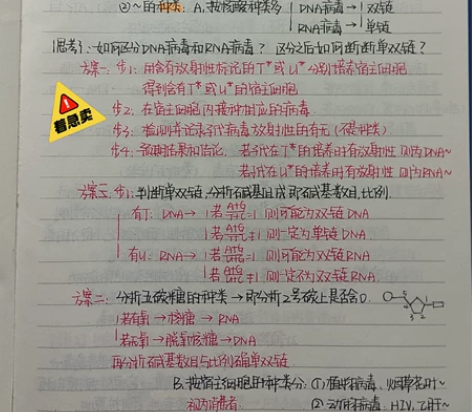 ②~的种类：A.按核酸种类分 DNA病毒→双链
RNA病毒→单链
思考：如何区分DNA病毒和RNA病毒？区分之后如何判断单双链？
方案一：步1：用含有放射性标记的T*或U*分别培养宿主细胞
得到含有T*或U*的宿主细胞
步2：在宿主细胞内接种相应的病毒
步3：检测子代病毒放射性的有无
步4：预期结果和结论 若子代在T*的培养时有放射性 则为DNA~
若子代在U*的培养时有放射性 则为RNA~
着急卖
方案三：步1：判断单双链，分析碱基组成即碱基数目、比例.
有T：DNA→ 若 =1 则可能为双链DNA
若 ≠1 则一定为单链DNA
有U：RNA→ 若 =1 则可能为双链RNA
若 ≠1 则一定 双链RNA
方案二：分析五碳糖的种类→即分析2号碳上是否含O.
若有氧→核糖→RNA
若 氧→脱氧核糖→DNA
再分析碱基数目与比例确单双链
B.按宿主细胞的种类分：①植物病毒、烟草花叶~
②动物病毒、HIV、